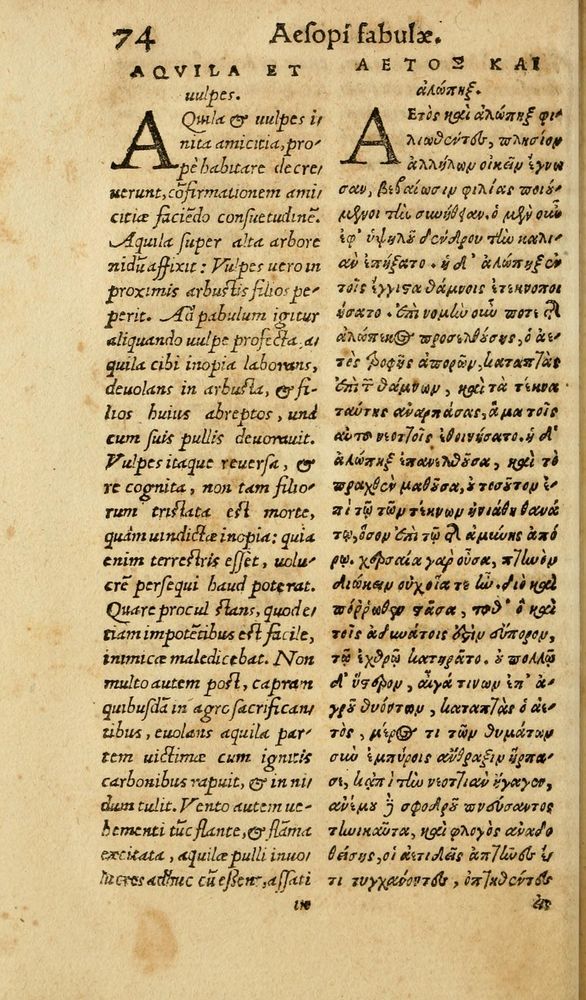 74 Aesopi fabulæ.
AQVILA ET
uulpes.
AQuila & uulpes i-
nita amicitia, pro-
pè habitare decre-
uerunt, cōfirmationem ami-
citiæ faciēdo consuetudinē.
Aquila super alta arbore
nidū affixit: Vulpes uero in
proximis arbustis filios pe-
perit. Ad pabulum igitur
aliquando uulpe profecta, a-
quila cibi inopia laborans,
deuolans in arbusta, & fi-
lios huius abreptos, unà
cum suis pullis deuorauit.
Vulpes itaque reuersa, &
re cognita, non tam filio-
rum tristata est morte,
quàm uindictæ inopia: quia
enim terrestris esset, uolu-
crē persequi haud poterat.
Quare procul stans, quod e-
tiam impotētibus est facile,
inimicæ maledicebat. Non
multo autem post, capram
quibusdā in agro sacrifican-
tibus, euolans aquila par-
tem uictimæ cum ignitis
carbonibus rapuit, & in ni-
dum tulit. Vento autem ue-
hementi tūc flante, & flāma
excitata, aquilæ pulli inuo-
lucres adhuc cū essent, assati
in
ΑΕΤΟΣ ΚΑΙ
ἀλώπηξ.
ΑΕτὸς καὶ ἀλώπηξ φι-
λιωθέντες, πλησίον
ἀλλήλων οἰκεῖν ἔγνω
σαν, βεβαίωσιν φιλίας ποιού
μενοι τὴν συνήθειαν. ὁ μὲν οὖν
ἐφ' ὑψηλοῦ δένδρου τὴν καλι-
ὰν ἐπήξατο. ἡ δ' ἀλώπηξ ἐν
τοῖς ἔγγιστα θάμνοις ἐτεκνοποι
ήσατο. ἐπὶ νομὴν οὖν ποτε τῆς
ἀλώπεκος προελθούσης, ὁ ἀε-
τὸς τροφῆς ἀπορῶν, καταπτὰς
ἐπὶ τῶν θάμνων, καὶ τὰ τέκνα
ταύτης ἀναρπάσας, ἅμα τοῖς
αὐτοῦ νεοττοῖς ἐθοινήσατο. ἡ δ'
ἀλώπηξ ἐπανελθοῦσα, καὶ τὸ
πραχθὲν μαθοῦσα, οὐ τοσοῦτον ἐ-
πὶ τῷ τῶν τέκνων ἠνιάθη θανά
τῳ, ὅσον ἐπὶ τῷ τῆς ἀμύνης ἀπό
ρῳ. χερσαία γὰρ οὖσα, πτηνὸν
διώκειν οὐχ οἵα τε ἦν. διὸ καὶ
πόρρωθεν στᾶσα, τοῦθ' ὃ καὶ
τοῖς ἀδυνάτοις ἐστὶν εὔπορον,
τῷ ἐχθρῷ κατηρᾶτο. οὐ πολλῷ
δ' ὕστερον, αἶγά τινων ἐπ' ἀ-
γροῦ θυόντων, καταπτὰς ὁ ἀε-
τὸς, μέρος τι τῶν θυμάτων
σὺν ἐμπύροις ἄνθραξιν ἥρπα-
σε, κἀπὶ τὴν νεοττιὰν ἤγαγεν,
ἀνέμου δὲ σφοδροῦ πνεύσαντος
τηνικαῦτα, καὶ φλογὸς ἀναδο
θείσης, οἱ ἀετιδεῖς ἀπτῆνες ἔ-
τι τυγχάνοντες, ὀπτηθέντες